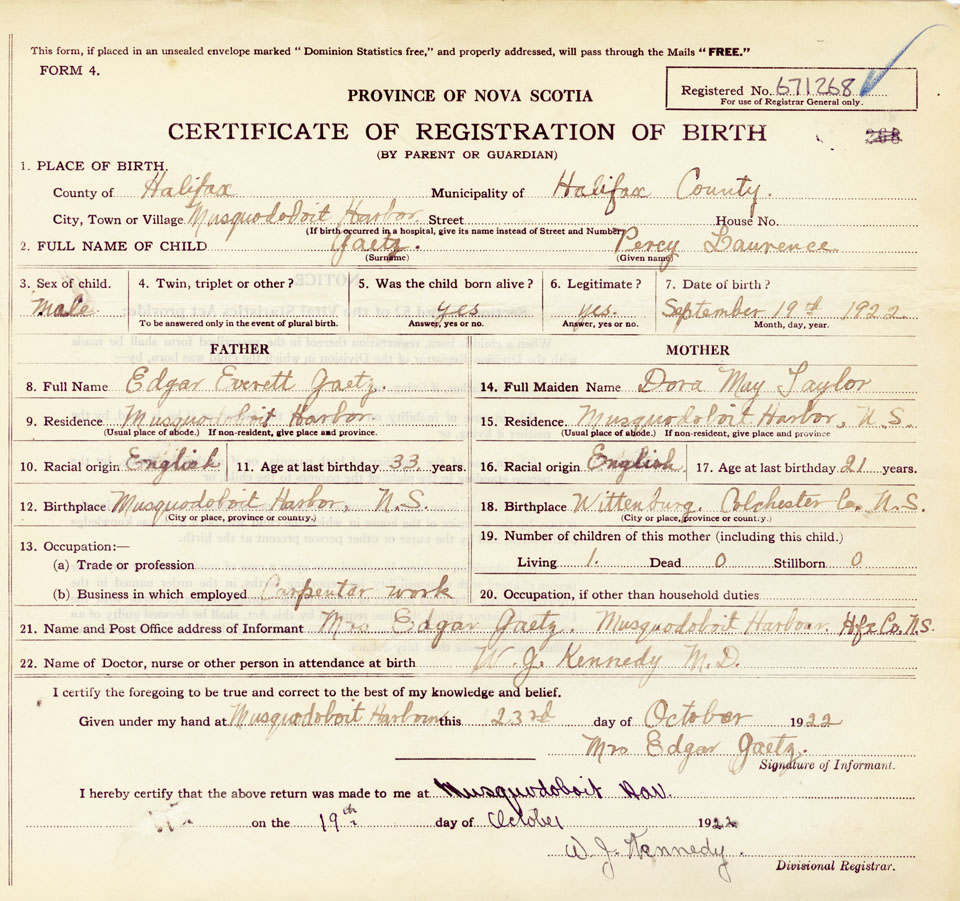 This form, if placed in an unsealed envelope marked "Dominion Statistics free," and properly addressed, will pass through the Mails "FREE."
FORM 4.
Registered No. 671268
For use of Registrar General only.
PROVINCE OF NOVA SCOTIA
CERTIFICATE OF REGISTRATION OF BIRTH 268
(BY PARENT OR GUARDIAN)
1. PLACE OF BIRTH.
County of Halifax Municipality of Halifax County.
City, Town or Village Musquodoboit Harbor Street House No.
(If birth occurred in a hospital, give its name instead of Street and Number)
2. FULL NAME OF CHILD Gaetz. Percy Laurence
(Surname) (Given name)
3. Sex of child. 4. Twin, triplet or other? 5. Was the child born alive? 6. Legitimate? 7. Date of birth?
Male yes yes. September 19th 1922
To be answered only in the event of plural birth. Answer, yes or no. Answer, yes or no. Month, day, year.
FATHER MOTHER
8. Full Name Edgar Everett Gaetz. 14. Full Maiden Name Dora May Taylor
9. Residence Musquodoboit Harbor. 15. Residence Musquodoboit Harbor, N.S.
(Usual place of abode.) If non-resident, give place and province. (Usual place of abode.) If non-resident, give place and province
10. Racial origin English 11. Age at last birthday 33 years. 16. Racial origin English 17. Age at last birthday 21 years.
12. Birthplace Musquodoboit Harbor, N.S. 18. Birthplace Wittenburg. Colchester Co. N.S.
(City or place, province or country.) (City or place, province or country.)
13. Occupation:— 19. Number of children of this mother (including this child.)
(a) Trade or profession Living 1. Dead 0 Stillborn 0
(b) Business in which employed Carpenter work 20. Occupation, if other than household duties
21. Name and Post Office address of Informant Mrs Edgar Gaetz. Musquodoboit Harbour. Hfx Co. N.S.
22. Name of Doctor, nurse or other person in attendance at birth W. J. Kennedy M.D.
I certify the foregoing to be true and correct to the best of my knowledge and belief.
Given under my hand at Musquodoboit Harbour this 23rd day of October 1922
Mrs Edgar Gaetz.
Signature of Informant.
I hereby certify that the above return was made to me at Musquodoboit Har.
on the 19th day of October 1922
W. J. Kennedy.
Divisional Registrar.